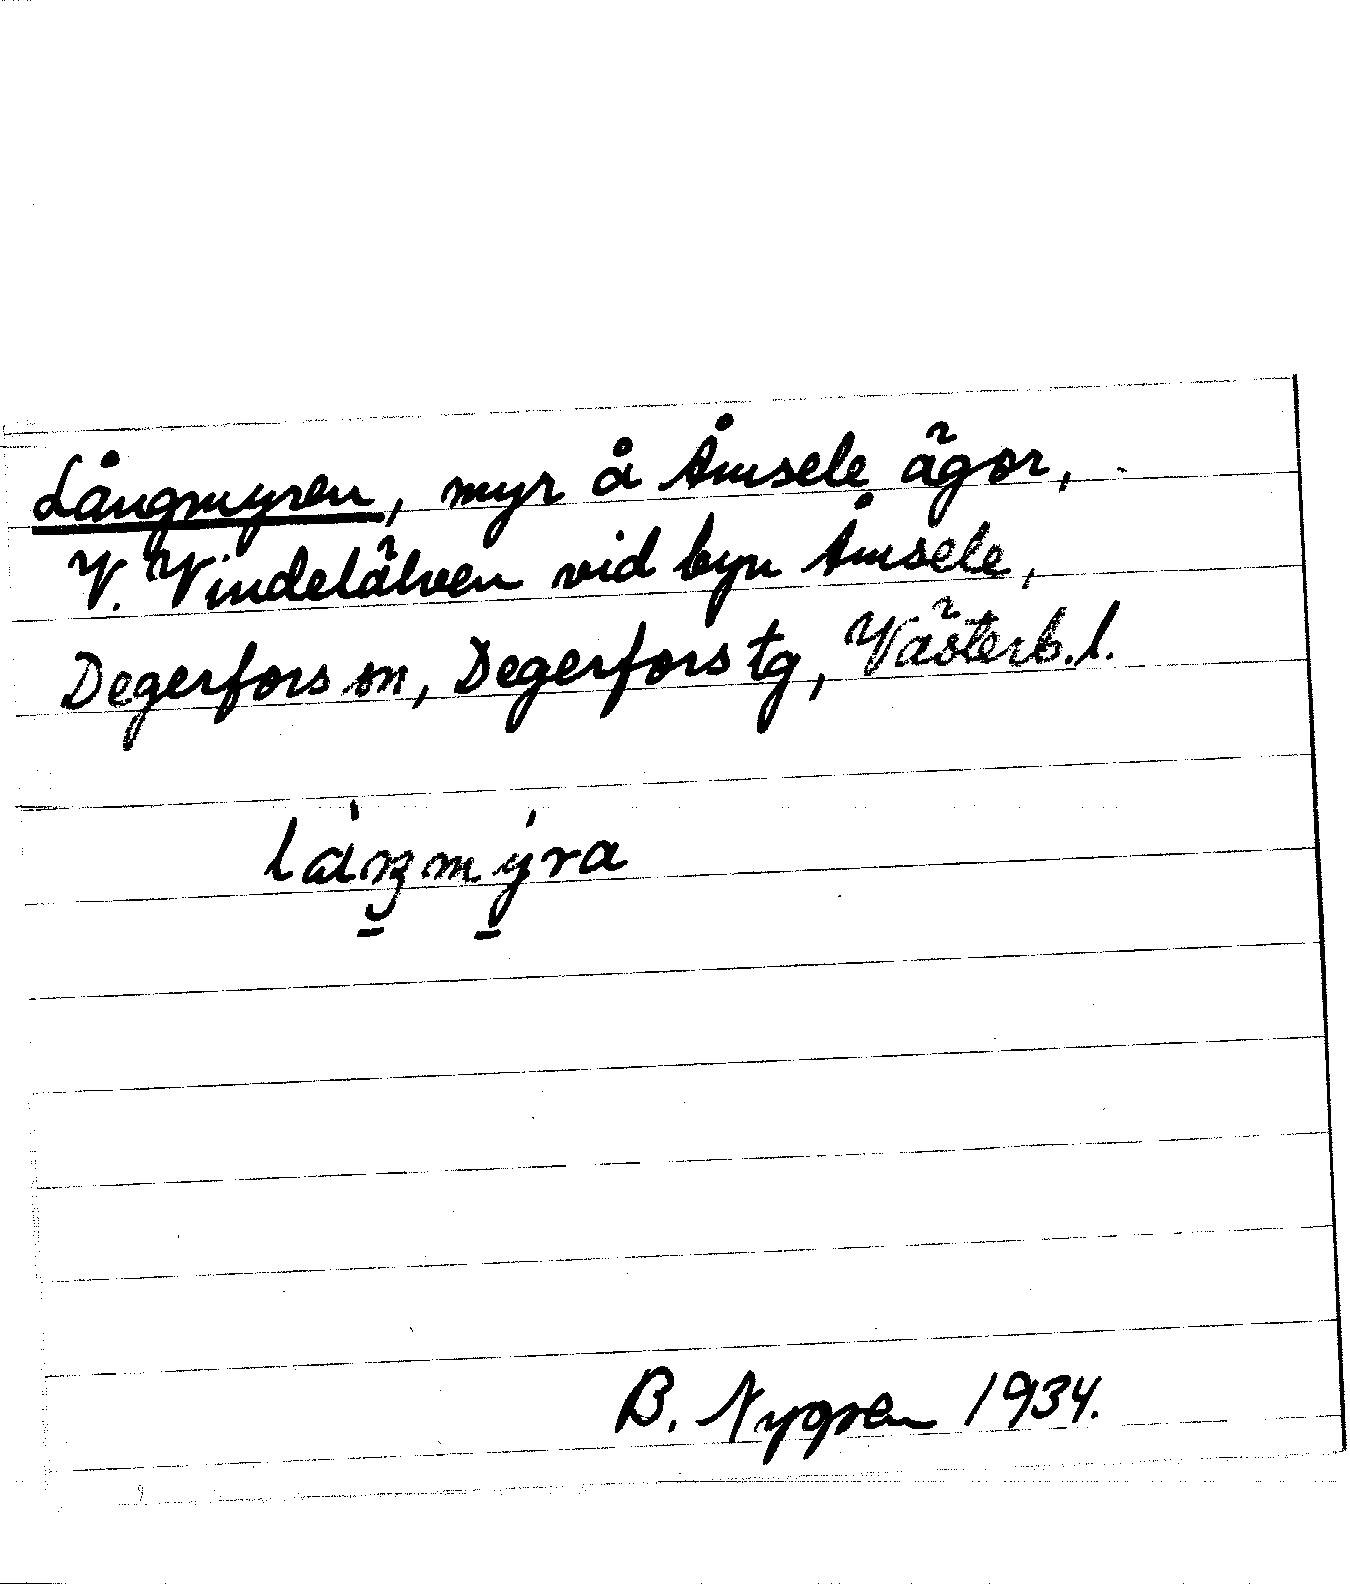 Långmyren, myr å Åmsele ägor,
V. Vindelälven vid byn Åmsele,
Degerfors sn, Degerfors tg, Västerb. l.
B. Nygren 1934.